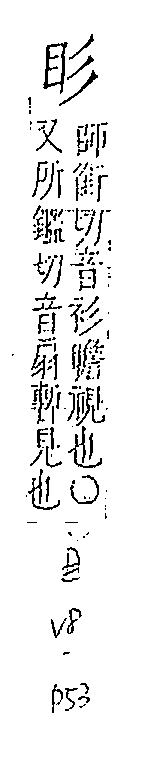 䀐
師銜切音衫瞻視也〇
又所鑑切音𢒉暫見也
V8
-
P53